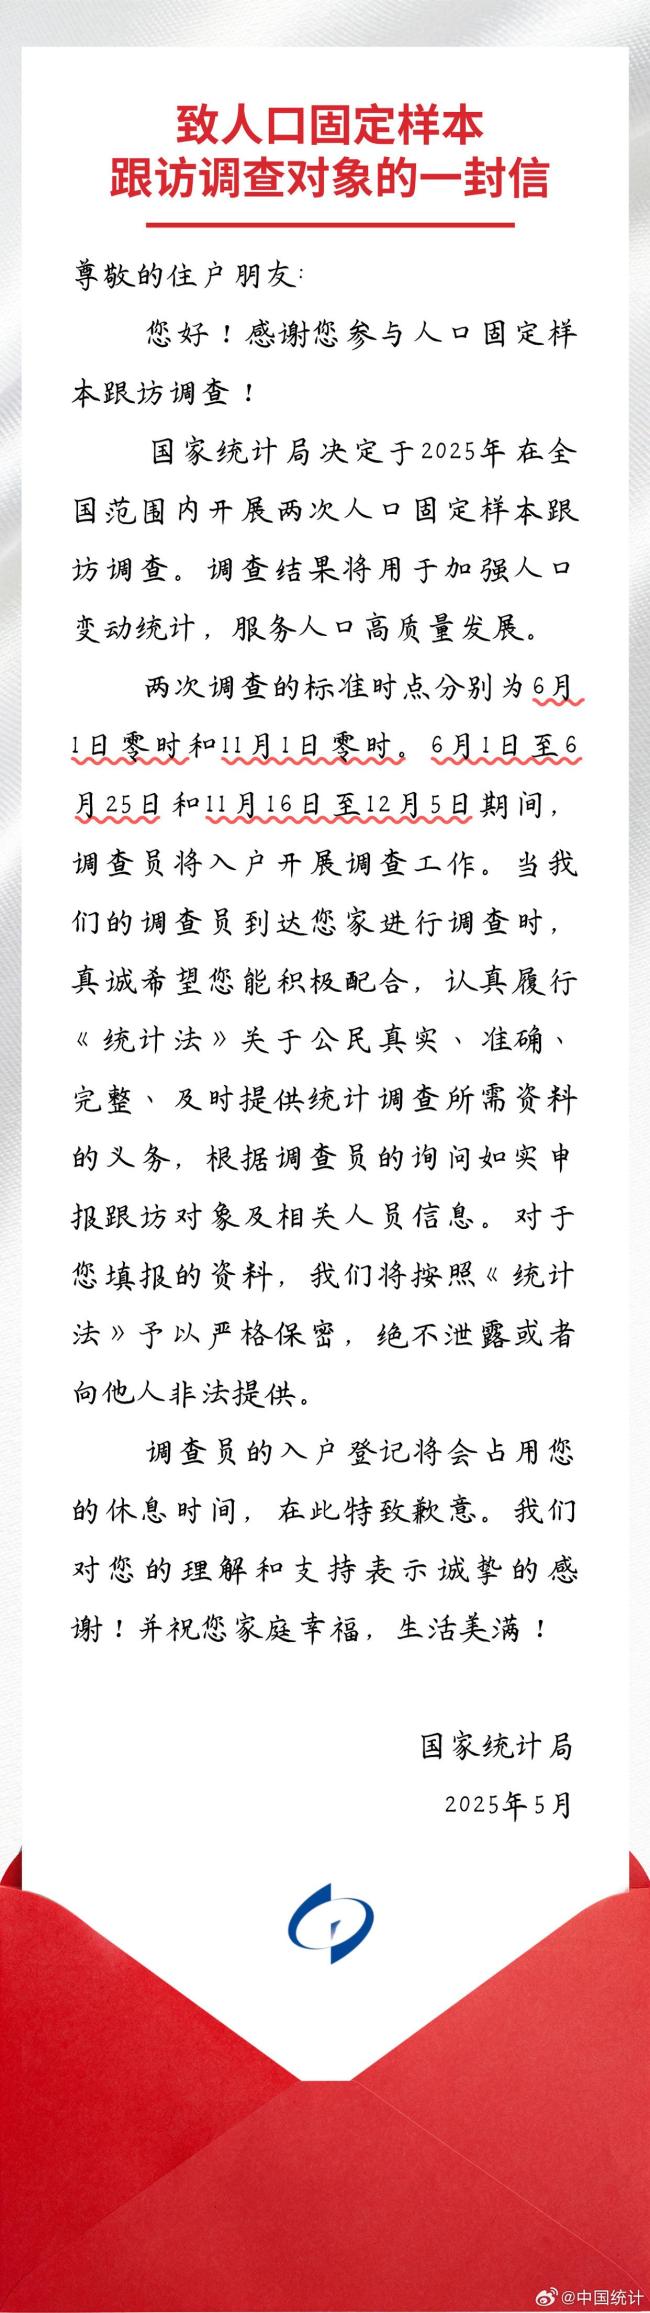 致人口固定样本
跟访调查对象的一封信
尊敬的住户朋友:
您好！感谢您参与人口固定样
本跟访调查！
国家统计局决定于2025年在全
国范围内开展两次人口固定样本跟
访调查。调查结果将用于加强人口
变动统计，服务人口高质量发展。
两次调查的标准时点分别为6月
1日零时和11月1日零时。6月1日至6
月25日和11月16日至12月5日期间，
调查员将入户开展调查工作。当我
们的调查员到达您家进行调查时，
真诚希望您能积极配合，认真履行
《统计法》关于公民真实、准确、
完整、及时提供统计调查所需资料
的义务，根据调查员的询问如实申
报跟访对象及相关人员信息。对于
您填报的资料，我们将按照《统计
法》予以严格保密，绝不泄露或者
向他人非法提供。
调查员的入户登记将会占用您
的休息时间，在此特致歉意。我们
对您的理解和支持表示诚挚的感
谢！并祝您家庭幸福，生活美满！
国家统计局
2025年5月
@中国统计